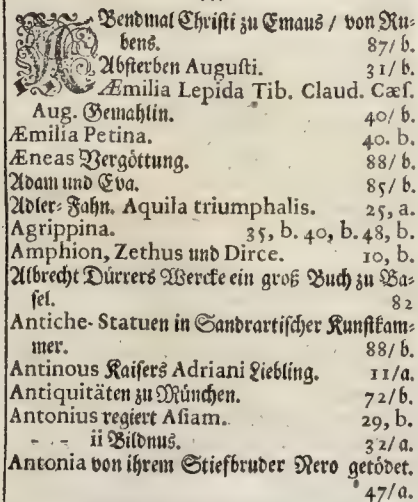 ABendmal Christi zu Emaus / von Ru-
bens. 87/ b.
Absterben Augusti. 31/ b.
Æmilia Lepida Tib. Claud. Cæs.
Aug. Gemahlin. 40/ b.
Æmilia Petina. 40. b.
Æneas Vergöttung. 88/ b.
Adam und Eva. 85/ b.
Adler-Fahn. Aquila triumphalis. 25, a.
Agrippina. 35, b. 40, b. 48, b.
Amphion, Zethus und Dirce. 10, b.
Albrecht Dürrers Wercke ein groß Buch zu Ba-
sel. 82
Antiche-Statuen in Sandrartischer Kunstkam-
mer. 88/ b.
Antinous Kaisers Adriani Liebling. 11/a.
Antiquitäten zu München. 72/b.
Antonius regiert Asiam. 29, b.
- - ii Bildnus. 32/a.
Antonia von ihrem Stiefbruder Nero getödet.
47/a.